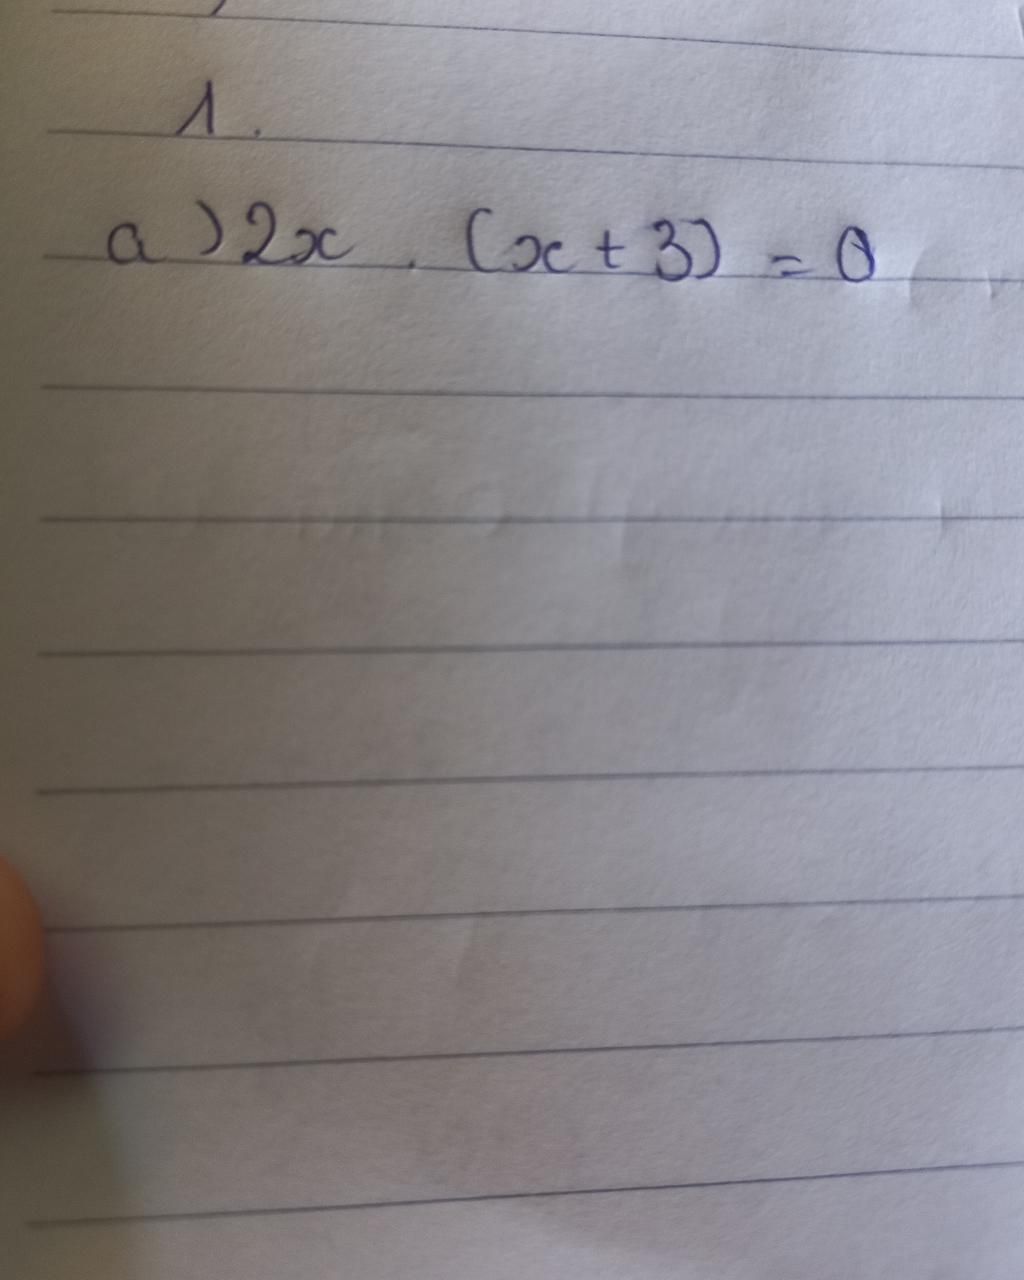 1.
a) 2x . (x + 3) = 0